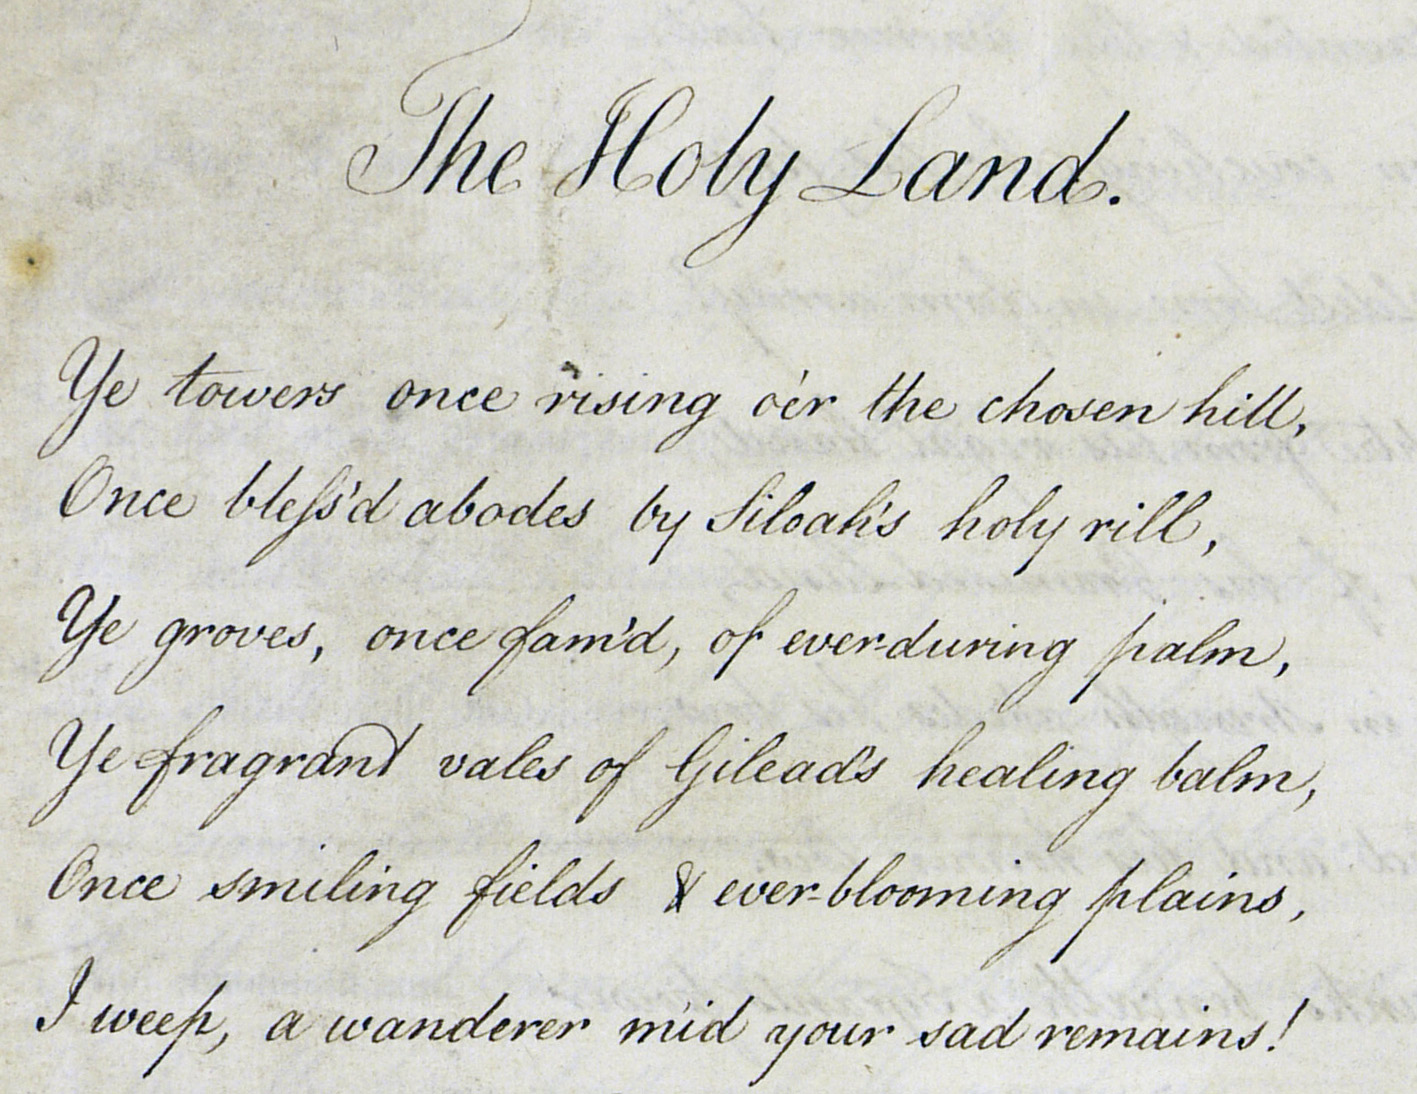 The Holy Land.
Ye towers once rising o'er the chosen hill,
Once bleſs'd abodes by Siloah's holy rill,
Ye groves, once fam'd, of ever-during palm,
Ye fragrant vales of Gilead's healing balm,
Once smiling fields & ever-blooming plains,
I weep, a wanderer mid your sad remains!